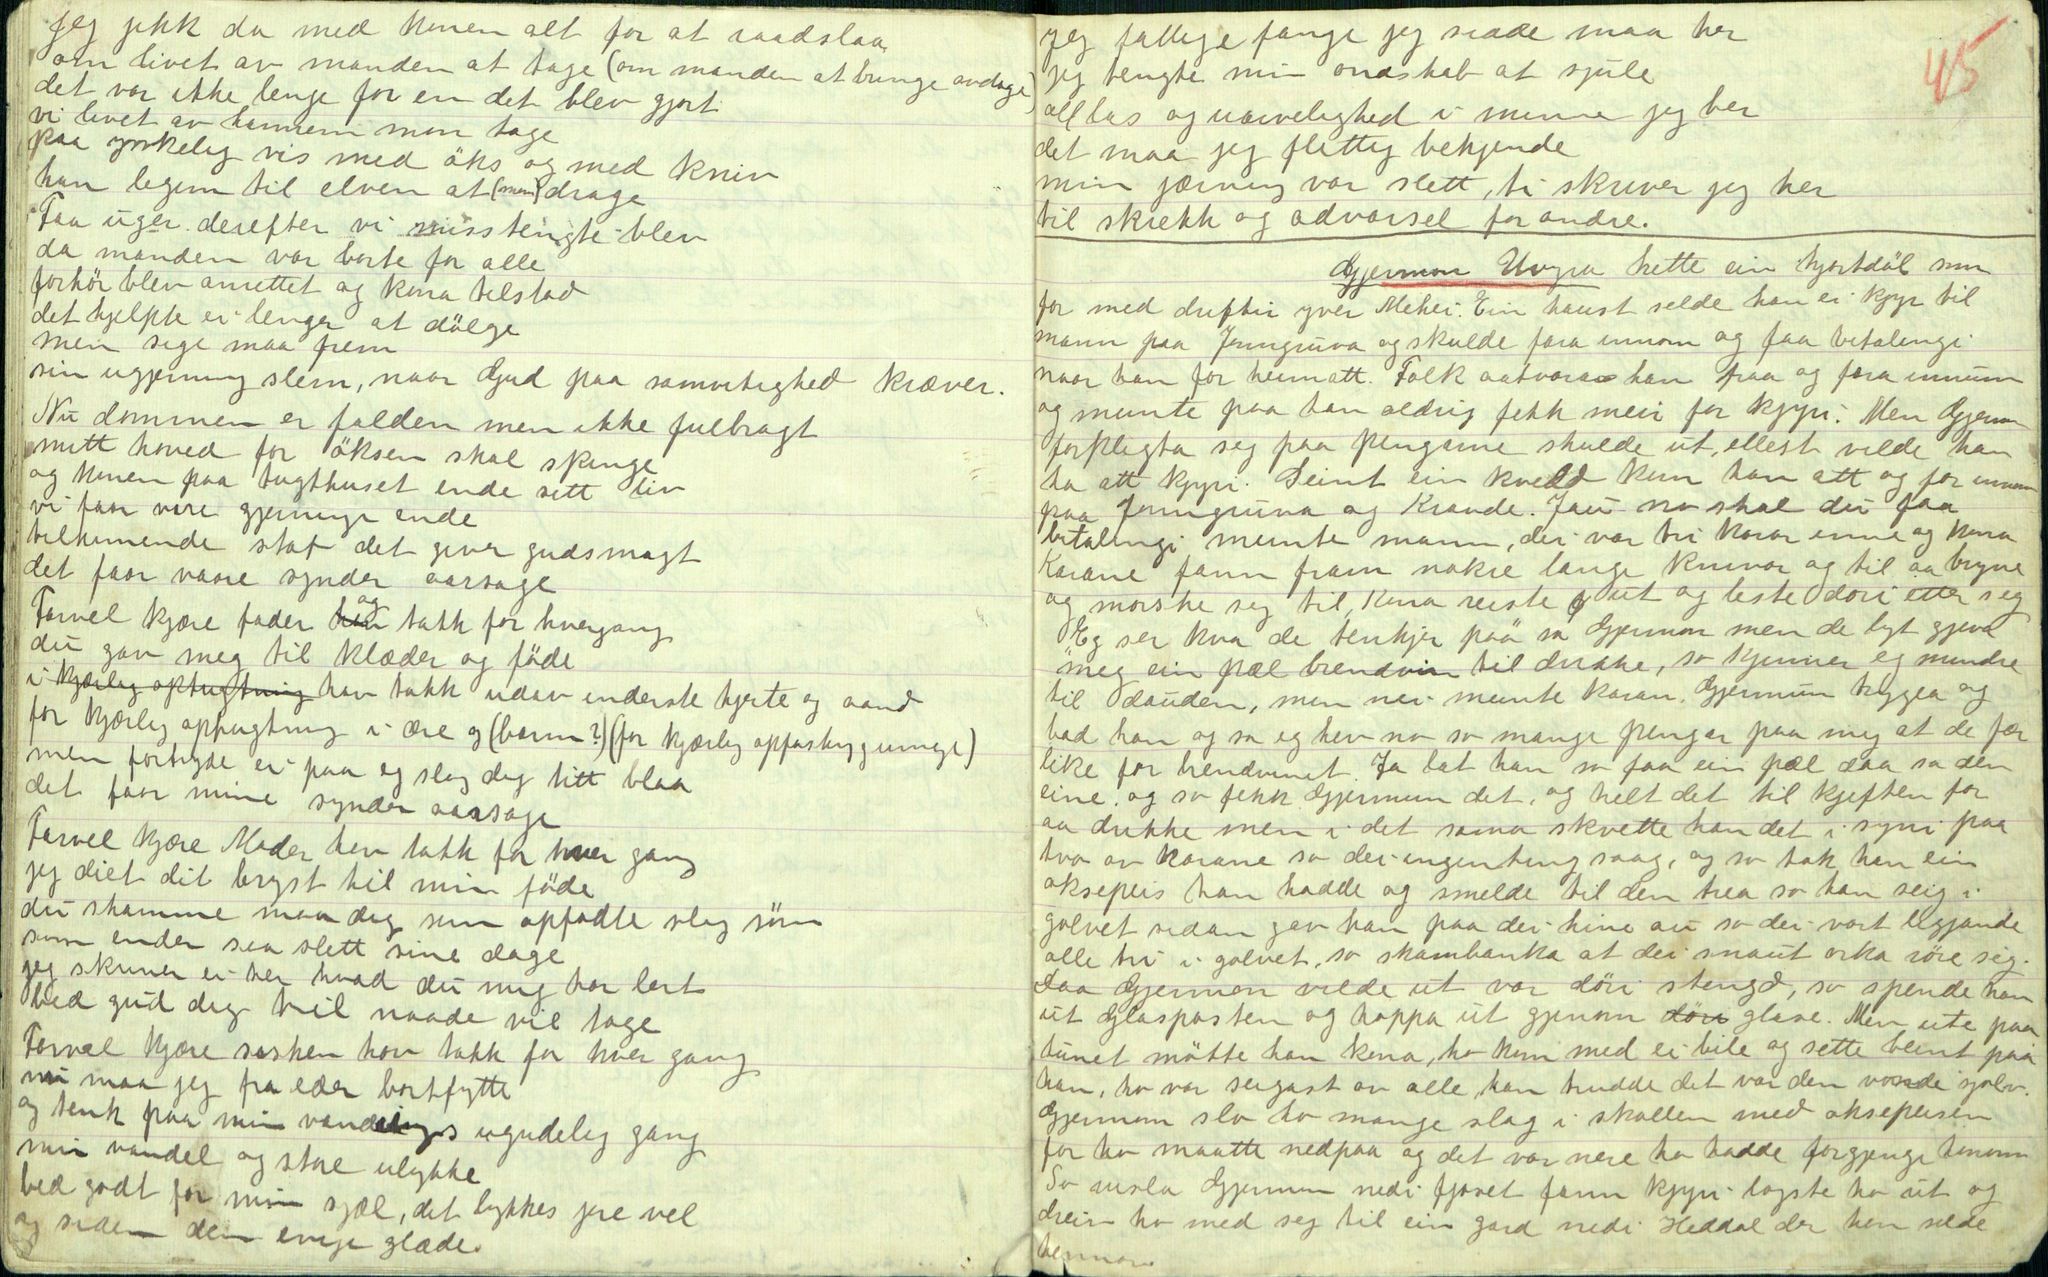 jeg jikk da med konen alt for at raadslaa
om livet av manden at tage (om manden at bringe avdage)
det var ikke lenge for en det blev gjort
vi livet av hannem mon tage
paa ynkelig vis med öks og med kniv
han legem til elven at (mon) drage
Faa uger derefter vi misstengte blev
da manden var borte for alle
forhör blev anrettet og kona tilstod
det hjelpte ei lenger at dölge
men sige maa frem
sin ugjerning slem, naar Gud paa samvitighed kræver.
Nu dommen er falden men ikke fulbragt
mitt hoved for öksen skal springe
og konen paa tugthuset ende sitt liv
vi faar vore gjerninge ende
tilkumende staf det giver gudsmagt
det faar vaare synder aarsage
Farvel kjære fader og takk for hvergang
du gav meg til klæder og föde
i kjærlig optugtning hav takk udav inderste hjerte og aand
for kjærlig optugtning i ære og (barm?) (for kjærlig opfostrygginge)
men fortryde ei paa eg slog dig titt blaa
det faar mine synder aarsage
Farvel kjære Moder hav takk for hver gang
jeg diet dit bryst til min föde
du skamme maa dig som opfödte slig sön
som ender saa slett sine dage
jeg skriver ei her hvad du mig har lert
bed gud dig til naade vil tage
Farvel kjære søsken hav takk for hver gang
nu maa jeg fra eder bortfytte
og tenk paa min vandrings ugudelig gang
min vandel og store ulykke
bed godt for min sjæl, det lykkes jere vel
og siden den evige glæde.
jeg fattige fange jeg sidde maa her
jeg tengte min ondskab at sjule
all las og uærvelighed i minne jeg ber
det maa jeg flittig bekjende
min jærning var slett, ti skriver jeg her
til skrekk og advarsel for andre.
45
Gjermon Uvyra hette ein hjortdöl som
for med drifter yver Mehei. Ein haust selde han ei kjyr til
mann paa Jonngruva og skulde fara innom og faa betalingi
naar han for heimatt. Folk aatvara han fraa og fara innum
og meinte paa han aldrig fekk meir for kjyri. Men Gjermon
forpligta seg paa pengarne skulde ut, ellest vilde han
ha att kjyri. Seint ein kveld kom han att og for innom
paa Jonngruva og Kravde. Jau no skal du faa
betalingi meinte mannen, dei var tri karar inne og kona
Karane fann fram nokre lange knivar og til aa bryne
og morske seg til, kona reiste ut og leste döri etter seg
Eg ser kva de tenkjer paa sa Gjermon men de lyt gjeva
meg ein pæl brendvin til drikke, so kjenner eg mindre
til dauden, men nei meinte karan. Gjermun trygla og
bad han og sa eg hev no so mange pengar paa meg at de fær
like for brendvinet. Ja lat han so faa ein pæl daa sa den
eine. og so fekk Gjermun det, og helt det til kjeften for
aa drikke men i det sama skvette han det i syni paa
tvo av karane so dei ingenting saag, og so tok han ein
oksepeis han hadde og smelde til den trea so han seig i
golvet sidan gav han paa dei hine au so dei vart liggjande
alle tri i golvet, so skambanka at dei snaut orka röre seg.
Daa Gjermon vilde ut var döri stengd, so spende han
ut Glasposten og hoppa ut gjenom döri glase. Men ute paa
tunet mötte han kona, ho kom med ei bile og sette beint paa
han, ho var seigast av alle, han trudde det var den vonde sjolv.
Gjermom slo ho mange slag i skallen med oksepeisen
for ho maatte nedpaa og det var nere ho hadde forgjengi honom
So rusla Gjermon nedi fjoset fann kjyri løyste ho ut og
dreiv ho med seg til ein gard nedi Heddal der han selde
henna.